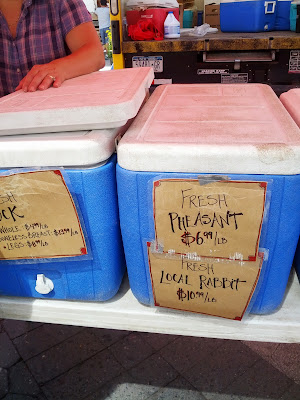 SH
CK
WHOLE: $4.99/LB
NELESS BREAST: $13.99/LB
• LEGS: $6.99/LB
FRESH
PHEASANT
$6.99/LB
FRESH
LOCAL RABBIT
$10.99/LB